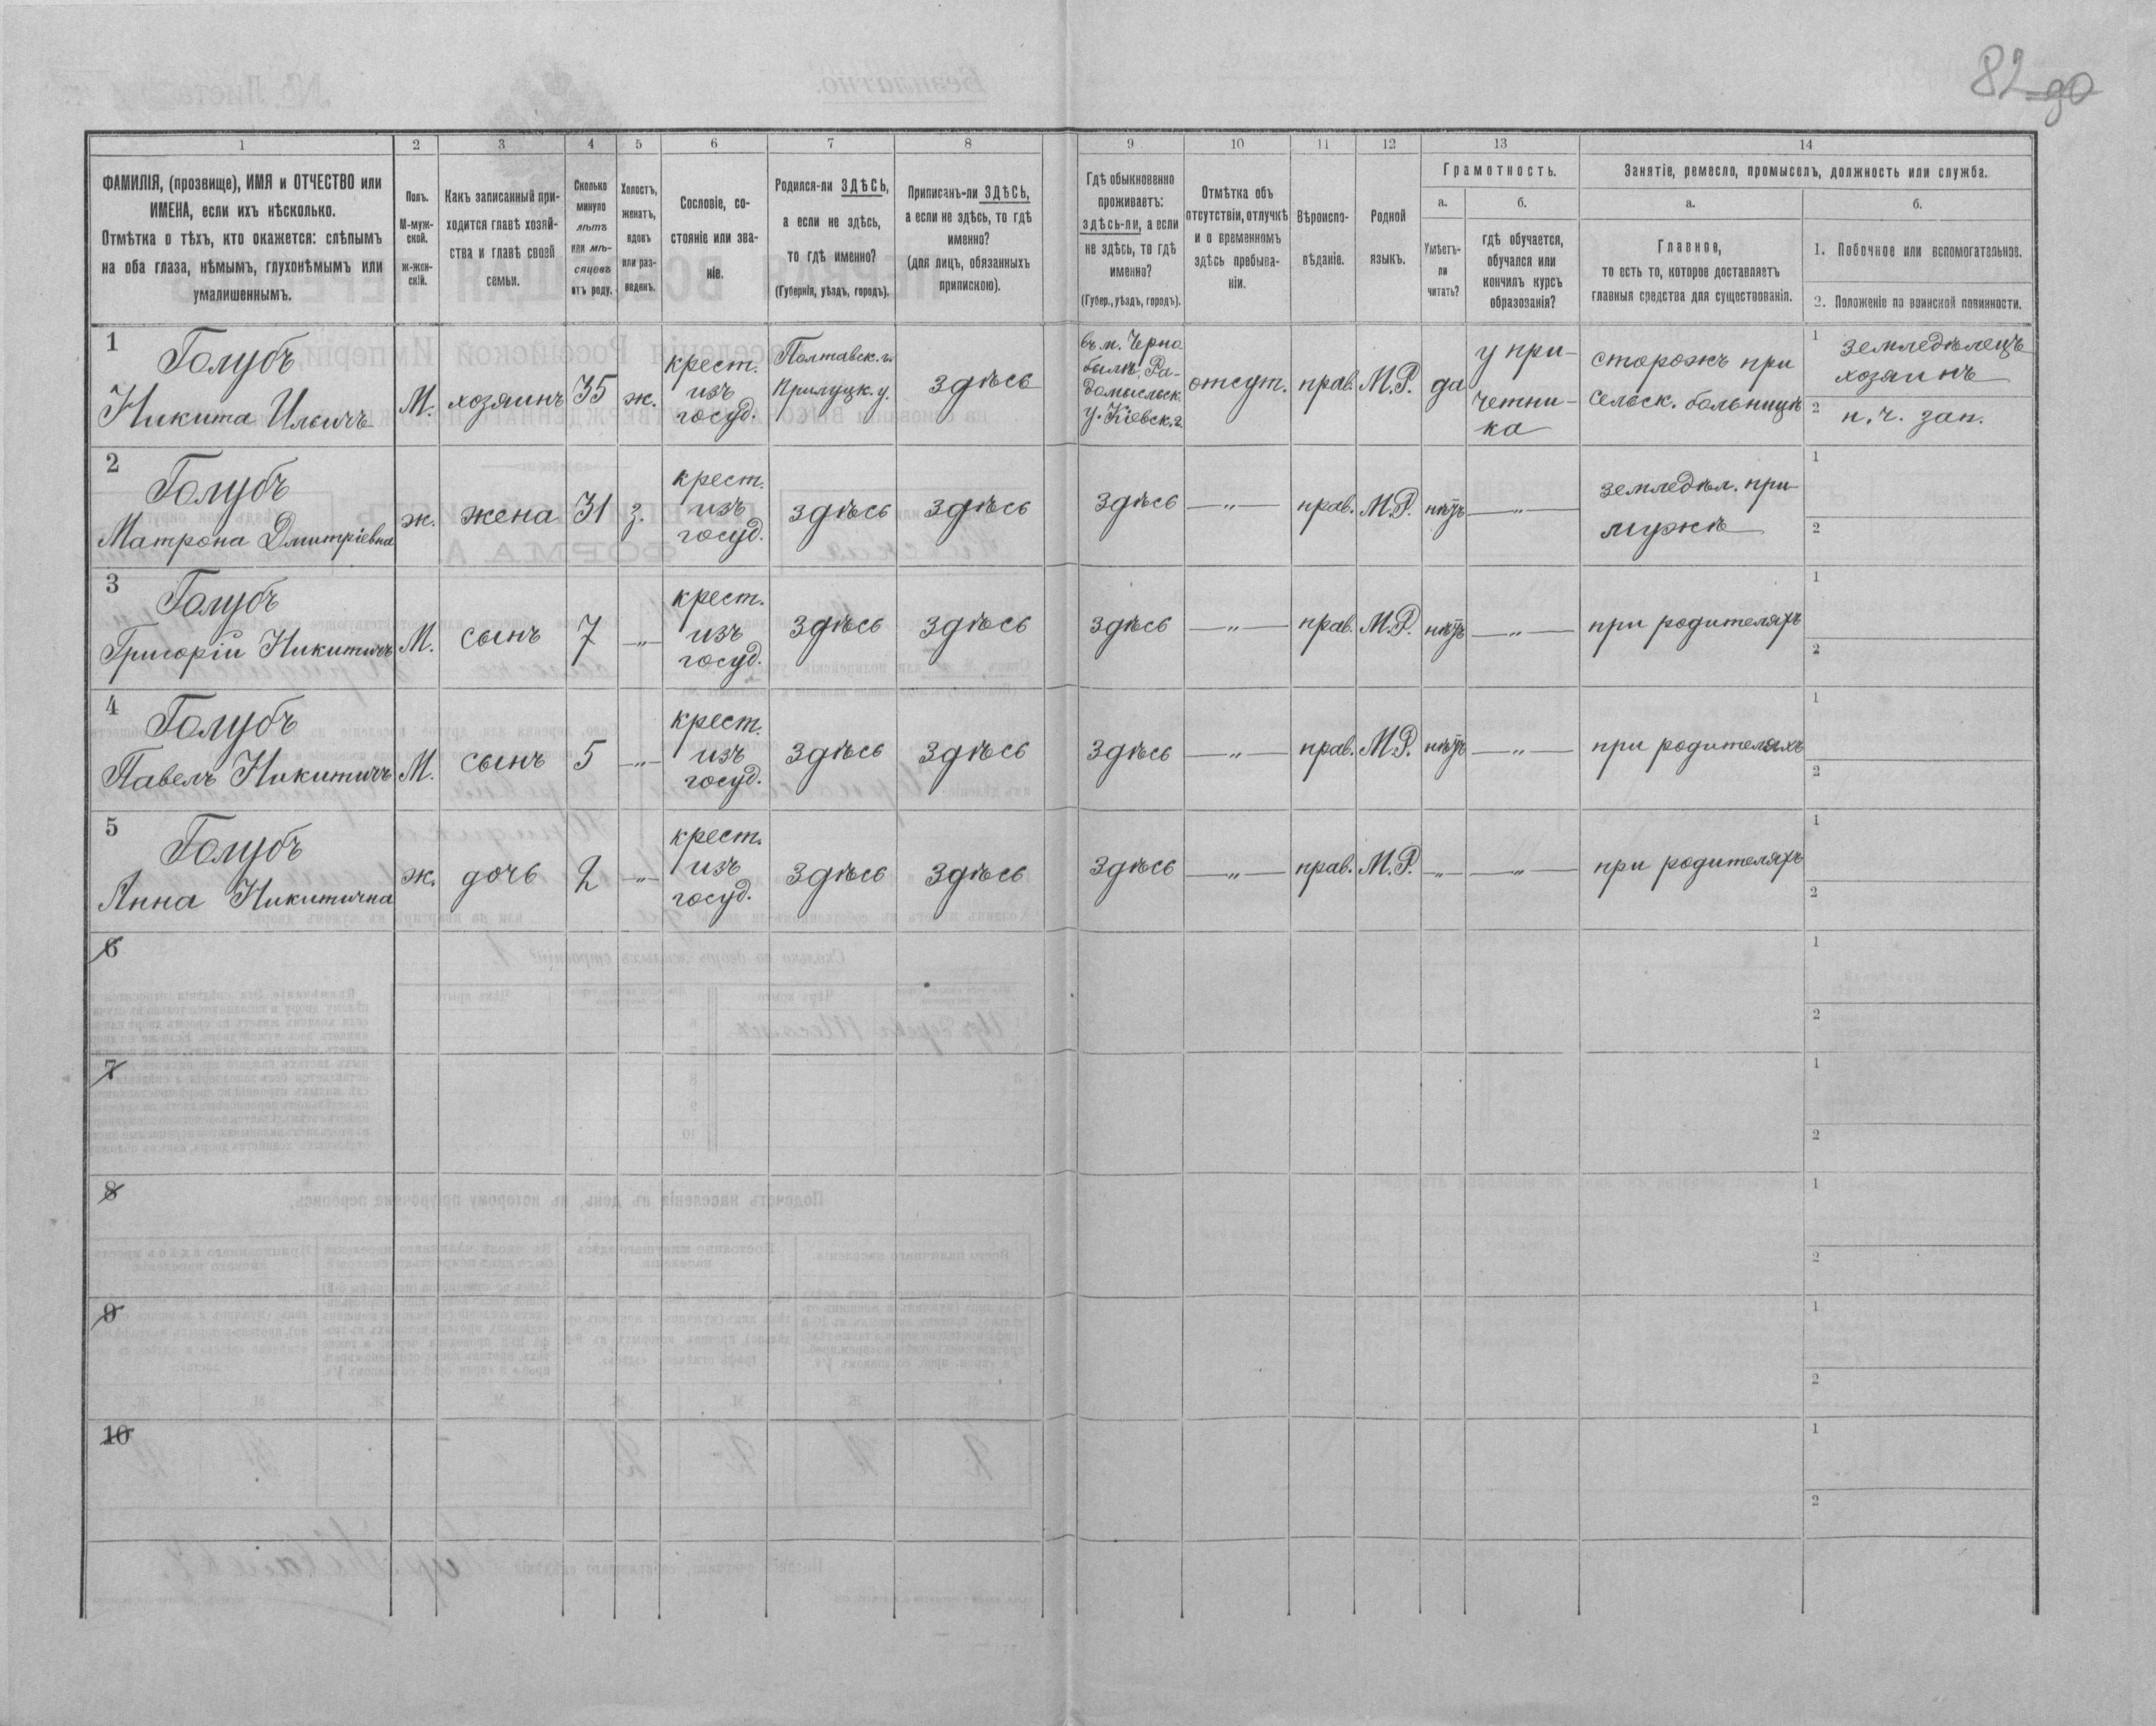 82 до
1 2 3 4 5 6 7 8 9 10 11 12 13 14
ФАМИЛІЯ, (прозвище), ИМЯ и ОТЧЕСТВО или
ИМЕНА, если ихъ нѣсколько.
Отмѣтка о тѣхъ, кто окажется: слѣпымъ
на оба глаза, нѣмымъ, глухонѣмымъ или
умалишеннымъ.
Полъ.
М-муж-
ской.
ж-жен-
скій.
Какъ записанный при-
ходится главѣ хозяй-
ства и главѣ своей
семьи.
Сколько
минуло
лѣтъ
или мѣ-
сяцевъ
отъ роду.
Холостъ,
женатъ,
вдовъ
или раз-
веденъ.
Сословіе, со-
стояніе или зва-
ніе.
Родился-ли ЗДѢСЬ,
а если не здѣсь,
то гдѣ именно?
(Губернія, уѣздъ, городъ).
Приписанъ-ли ЗДѢСЬ,
а если не здѣсь, то гдѣ
именно?
(для лицъ, обязанныхъ
припискою).
Гдѣ обыкновенно
проживаетъ:
здѣсь-ли, а если
не здѣсь, то гдѣ
именно?
(Губер., уѣздъ, городъ).
Отмѣтка объ
отсутствіи, отлучкѣ
и о временномъ
здѣсь пребыва-
ніи.
Вѣроиспо-
вѣданіе.
Родной
языкъ.
Грамотность.
а.
Умѣетъ-
ли
читать?
б.
гдѣ обучается,
обучался или
кончилъ курсъ
образованія?
Занятіе, ремесло, промыселъ, должность или служба.
а.
Главное,
то есть то, которое доставляетъ
главныя средства для существованія.
б.
1. Побочное или вспомогательное.
2. Положеніе по воинской повинности.
1
Голубъ
Никита Ильичъ
М.
хозяинъ
35
ж.
крест.
изъ
госуд.
Полтавск. г.
Прилуцк. у.
здѣсь
въ м. Черно
былѣ, Ра-
домысльск.
у. Кіевск. г.
отсут.
прав.
М.Р.
да
у при-
четни-
ка
сторожъ при
сельск. больницѣ
1 земледѣлецъ
хозяинъ
2 н. ч. зап.
2
Голубъ
Матрона Дмитріевна
ж.
жена
31
з.
крест.
изъ
госуд.
здѣсь
здѣсь
здѣсь
— „ —
прав.
М.Р.
нѣтъ
— „ —
земледѣл. при
мужѣ
1
2
3
Голубъ
Григорій Никитичъ
М.
сынъ
7
— „ —
крест.
изъ
госуд.
здѣсь
здѣсь
здѣсь
— „ —
прав.
М.Р.
нѣтъ
— „ —
при родителяхъ
1
2
4
Голубъ
Павелъ Никитичъ
М.
сынъ
5
— „ —
крест.
изъ
госуд.
здѣсь
здѣсь
здѣсь
— „ —
прав.
М.Р.
нѣтъ
— „ —
при родителяхъ
1
2
5
Голубъ
Анна Никитична
ж.
дочь
2
— „ —
крест.
изъ
госуд.
здѣсь
здѣсь
здѣсь
— „ —
прав.
М.Р.
— „ —
— „ —
при родителяхъ
1
2
6
1
2
7
1
2
8
1
2
9
1
2
10
1
2